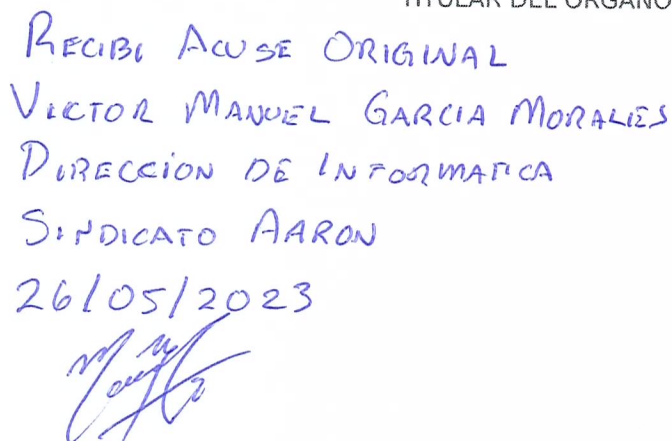 TITULAR DEL ÓRGANO
RECIBI ACUSE ORIGINAL
VICTOR MANUEL GARCIA MORALES
DIRECCION DE INFORMATICA
SINDICATO AARON
26/05/2023